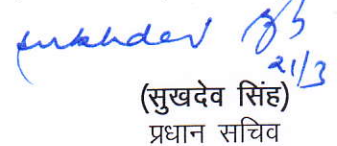 sukhdev
21/3
(सुखदेव सिंह)
प्रधान सचिव